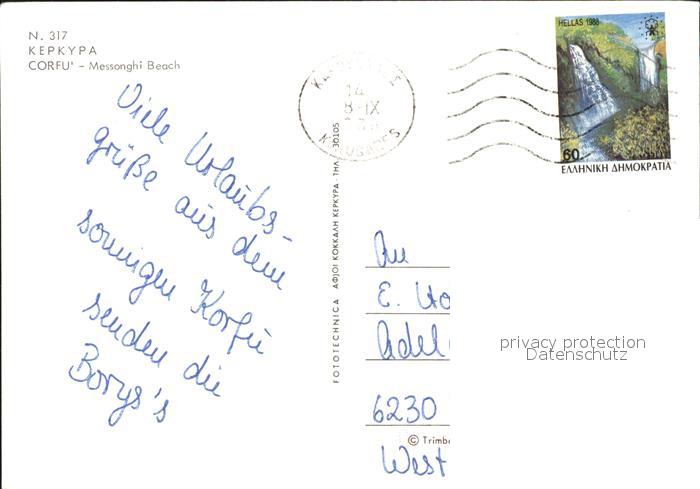 N. 317
ΚΕΡΚΥΡΑ
CORFU' – Messonghi Beach
Viele Urlaubs-
grüße aus dem
sonnigen Korfu
senden die
Borys's
FOTOTECHNICA ΑΦΙΟΙ ΚΟΚΚΑΛΗ ΚΕΡΚΥΡΑ - ΤΗΛ. 30105
14
8-IX
HELLAS 1988
60
ΕΛΛΗΝΙΚΗ ΔΗΜΟΚΡΑΤΙΑ
An
E. Ho
Adel
6230
© Trimb
West
privacy protection
Datenschutz